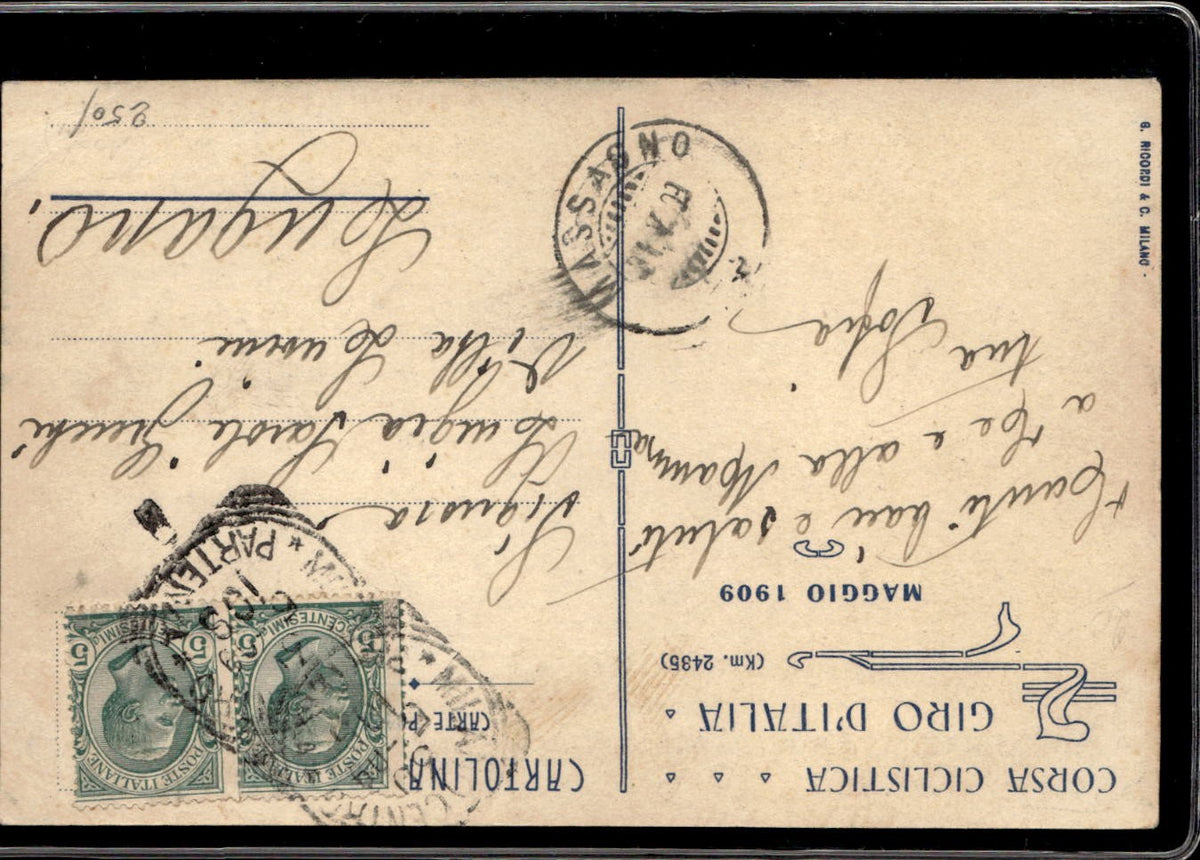 CORSA CICLISTICA
GIRO D'ITALIA
(Km. 2435)
MAGGIO 1909
Tanti baci e saluti
a Te e alla Mamma
tua Sofia
G. RICORDI & C. MILANO -
CARTOLINA
CARTE PO
POSTE ITALIANE
5 CENTESIMI 5
POSTE ITALIANE
CENTESIMI 5
MILANO
CENTRO
PARTENZA
MASSAGNO
Signora
Luigia
Villa
Lugano.
250/